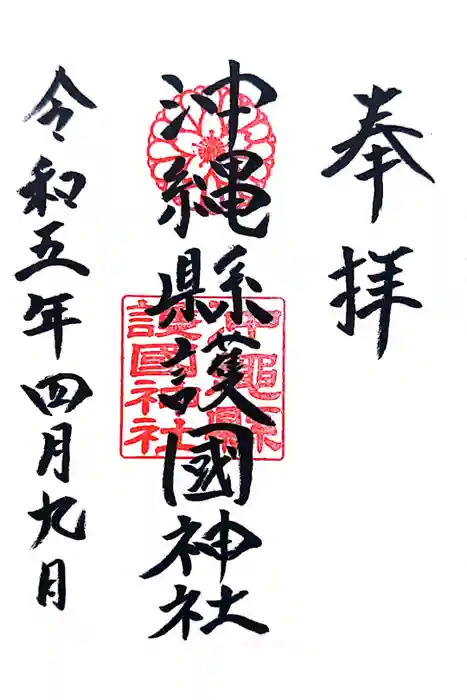 奉拝
沖縄縣護國神社
沖繩縣
護國神社
令和五年四月九日